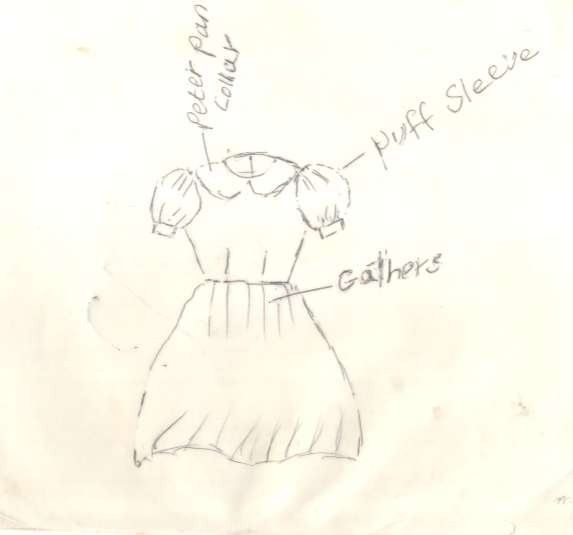 Peter pan
Collar
Puff Sleeve
Gathers